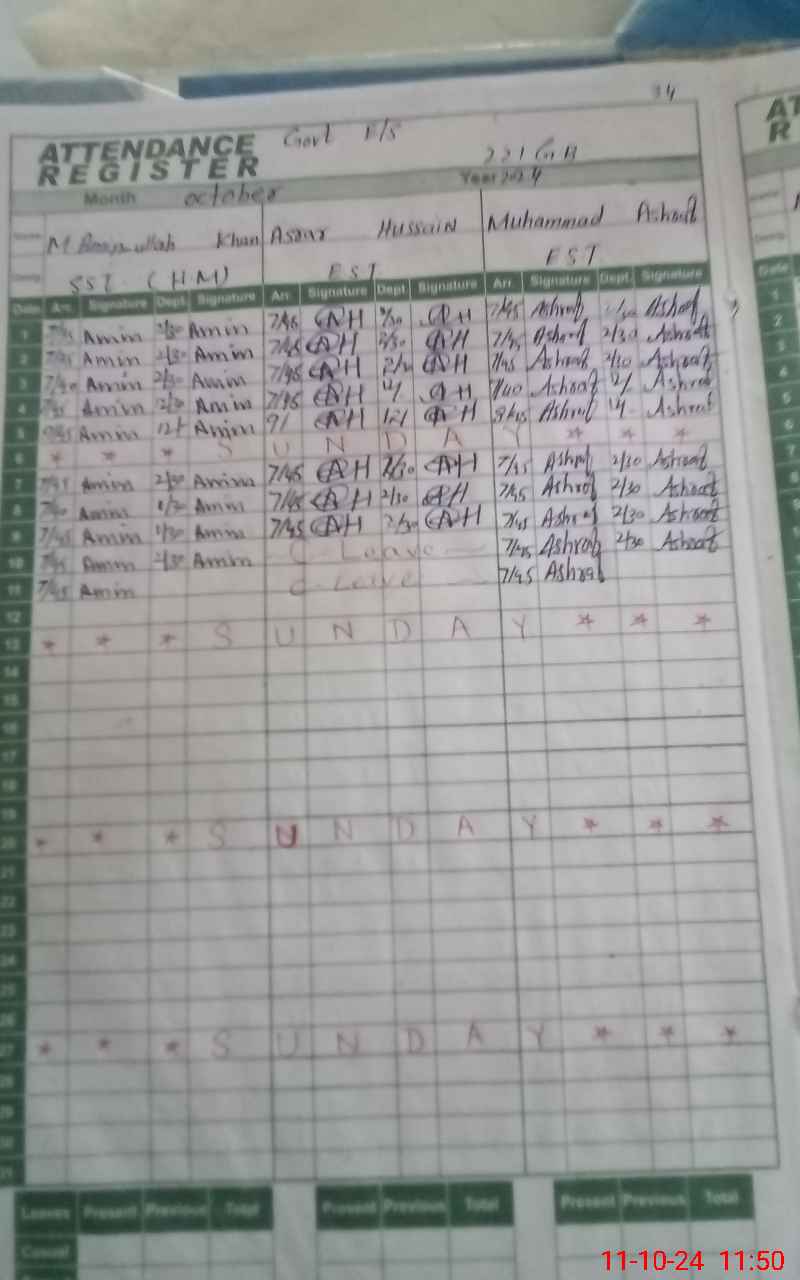 34
ATTENDANCE Govt E/S
REGISTER 221 GB
Month october Year 2024
Name M Khan Asrar Hussain Muhammad Ashraf
SST (HM) EST EST
Date Arr. Signature Dept. Signature Arr. Signature Dept. Signature Arr. Signature Dept. Signature
1 7/45 Amin 2/30 Amin 7/45 AH 2/30 AH 7/45 Ashraf 2/30 Ashraf
2 7/45 Amin 2/30 Amin 7/45 AH 2/30 AH 7/45 Ashraf 2/30 Ashraf
3 Amin 2/30 Amin 7/45 AH 2/30 AH 7/45 Ashraf 2/30 Ashraf
4 Amin 2/30 Amin 7/45 AH 12/ AH 7/40 Ashraf 12/ Ashraf
5 Amin 12/ Amin 9/ AH 12/ AH Ashraf 12/ Ashraf
6 * * * S U N D A Y * * *
7 7/45 Amin 2/30 Amin 7/45 AH 2/30 AH 7/45 Ashraf 2/30 Ashraf
8 Amin Amin 7/45 AH 2/30 AH 7/45 Ashraf 2/30 Ashraf
9 7/45 Amin Amin 7/45 AH 2/30 AH 7/45 Ashraf 2/30 Ashraf
10 7/45 Amin 2/30 Amin C-Leave 7/45 Ashraf 2/30 Ashraf
11 7/45 Amin C-Leave 7/45 Ashraf
12
13 * * * S U N D A Y * * *
14
15
16
17
18
19
20 * * * S U N D A Y * * *
21
22
23
24
25
26
27 * * * S U N D A Y * * *
28
29
30
31
Leaves Present Previous Total Present Previous Total Present Previous Total
Casual
11-10-24 11:50